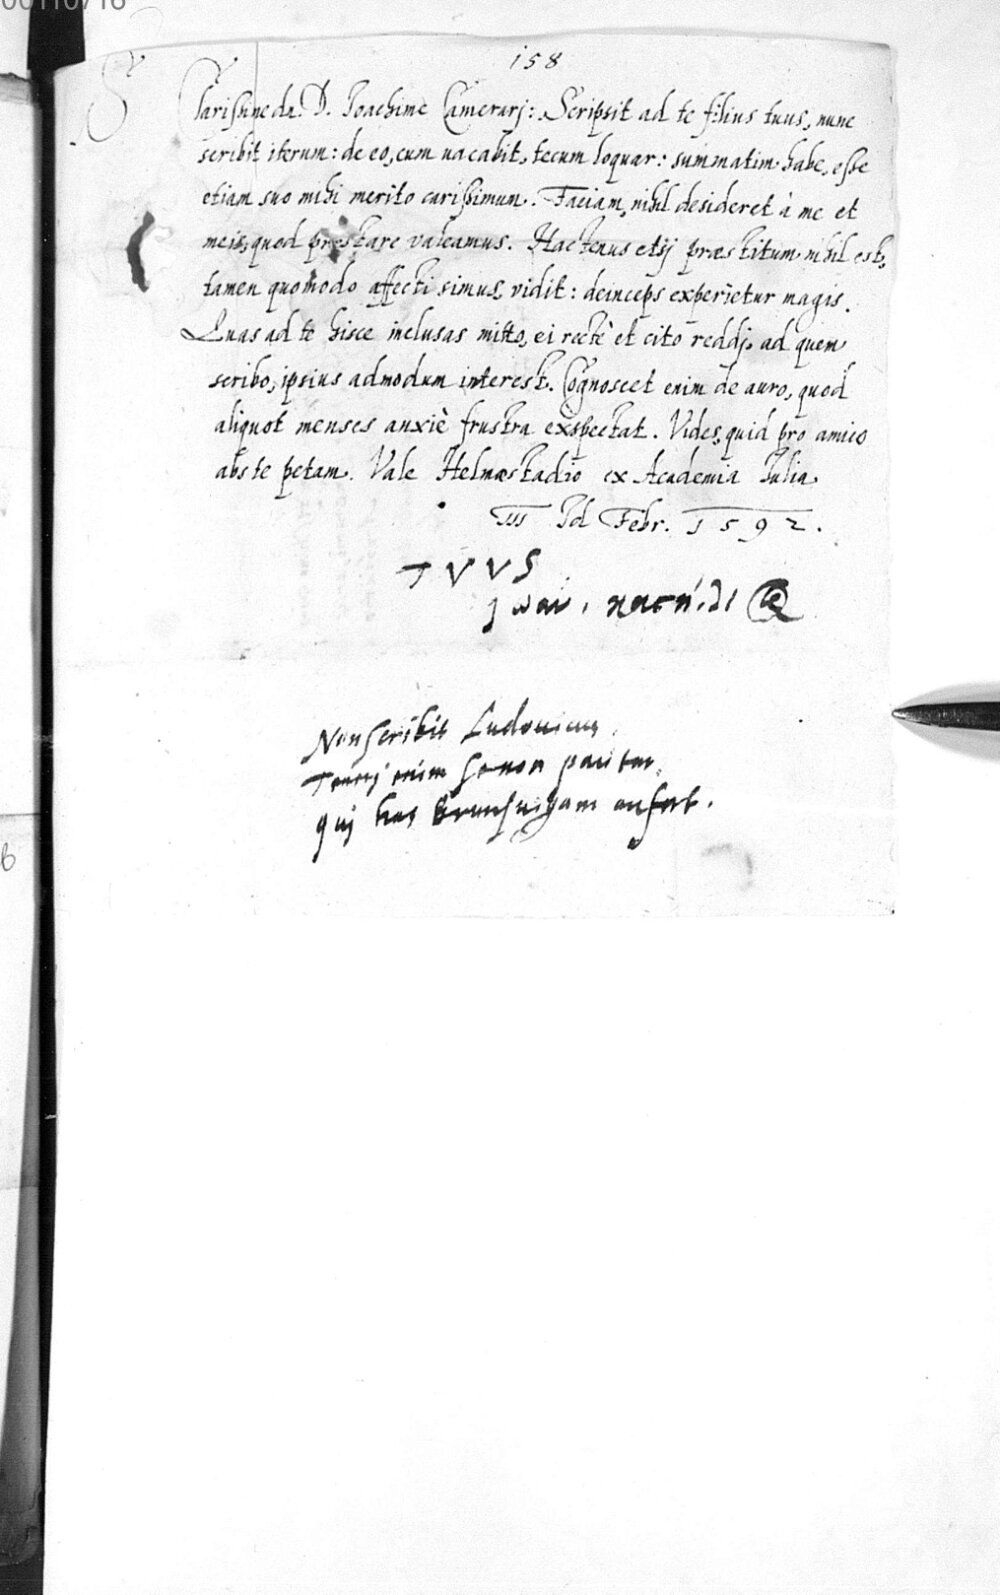 00110716
158
S
Clarissime dn. D. Ioachime Camerarj: Scripsit ad te filius tuus, nunc
scribit iterum: de eo, cum uacabit, tecum loquar: summatim habe, esse
etiam suo mihi merito carissimum. Faciam, nihil desideret à me et
meis, quod præstare valeamus. Hactenus etsj præstitum nihil est,
tamen quomodo affecti simus, vidit: deinceps experietur magis.
Quas ad te hisce inclusas mitto, ei rectè et cito reddj, ad quem
scribo, ipsius admodum interest. Cognoscet enim de auro, quod
aliquot menses anxiè frustra exspectat. Vides, quid pro amico
abs te petam. Vale Helmæstadio ex Academia Iulia
III Id Febr. 1592.
TVVS
Non scribit Ludouicus,
enim
quj has Brunsuigam aufert.
6